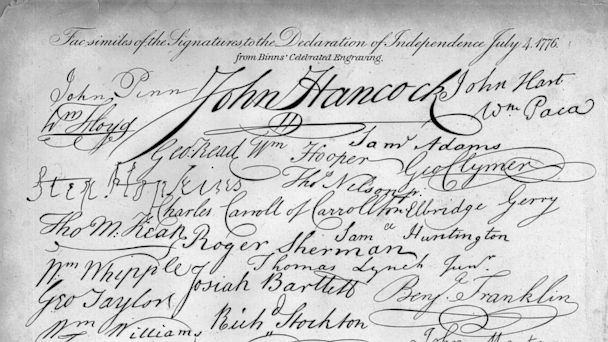 Fac-similes of the Signatures to the Declaration of Independence July 4. 1776.
from Binns' Celebrated Engraving.
John Penn John Hancock John Hart
Wm Floyd Wm Paca
Saml Adams
Geo: Read Wm Hooper Geo Clymer
Step. Hopkins Thos Nelson jr.
Charles Carroll of Carrollton Elbridge Gerry
Tho M:Kean Roger Sherman Saml Huntington
Wm Whipple Thomas Lynch Junr.
Geo Taylor Josiah Bartlett Benj. Franklin
Wm Williams Richd Stockton
John